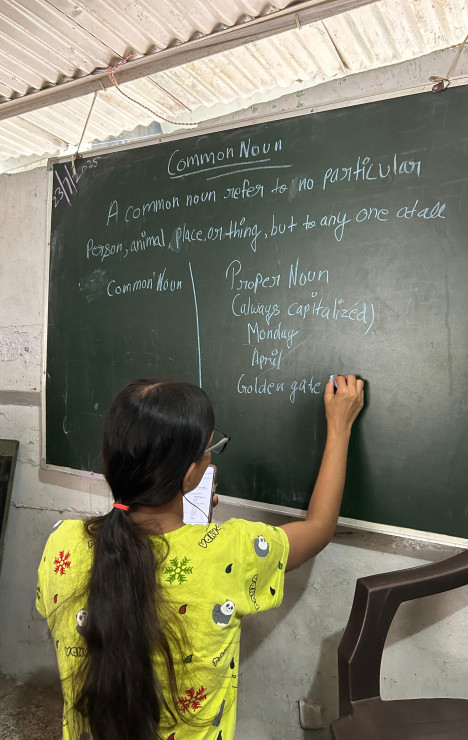 23/11/2025
Common Noun
A common noun refer to no particular
Person, animal, place, or thing, but to any one at all
Common Noun
Proper Noun
(always capitalized)
Monday
April
Golden gate